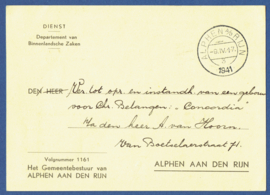 DIENST
Departement van
Binnenlandsche Zaken
ALPHEN a/d RIJN
1941
DEN HEER Ver. tot opr. en instandh. van een gebouw
voor Chr. Belangen: "Concordia"
p/a den heer A. van Hoorn.
Van Boetzelaerstraat 71.
Volgnummer 1161
Het Gemeentebestuur van
ALPHEN AAN DEN RIJN
ALPHEN AAN DEN RIJN